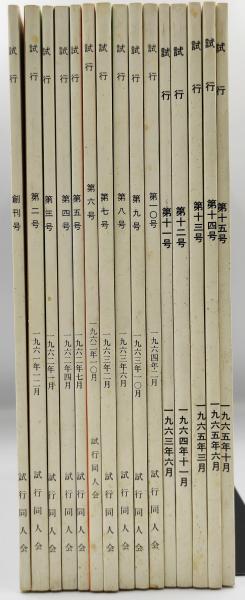 試行 創刊号 試行同人会
試行 第二号 一九六一年一二月 試行同人会
試行 第三号 試行同人会
試行 第四号 一九六二年四月 試行同人会
試行 第五号 一九六二年七月 試行同人会
試行 第六号 一九六二年一〇月 試行同人会
試行 第七号 試行同人会
試行 第八号 一九六三年六月 試行同人会
試行 第九号 一九六三年一〇月 試行同人会
試行 第一〇号 試行同人会
試行 第十一号 一九六三年六月
試行 第十二号 一九六四年十一月
試行 第十三号 一九六五年三月
試行 第十四号 一九六五年六月
試行 第十五号 一九六五年十月